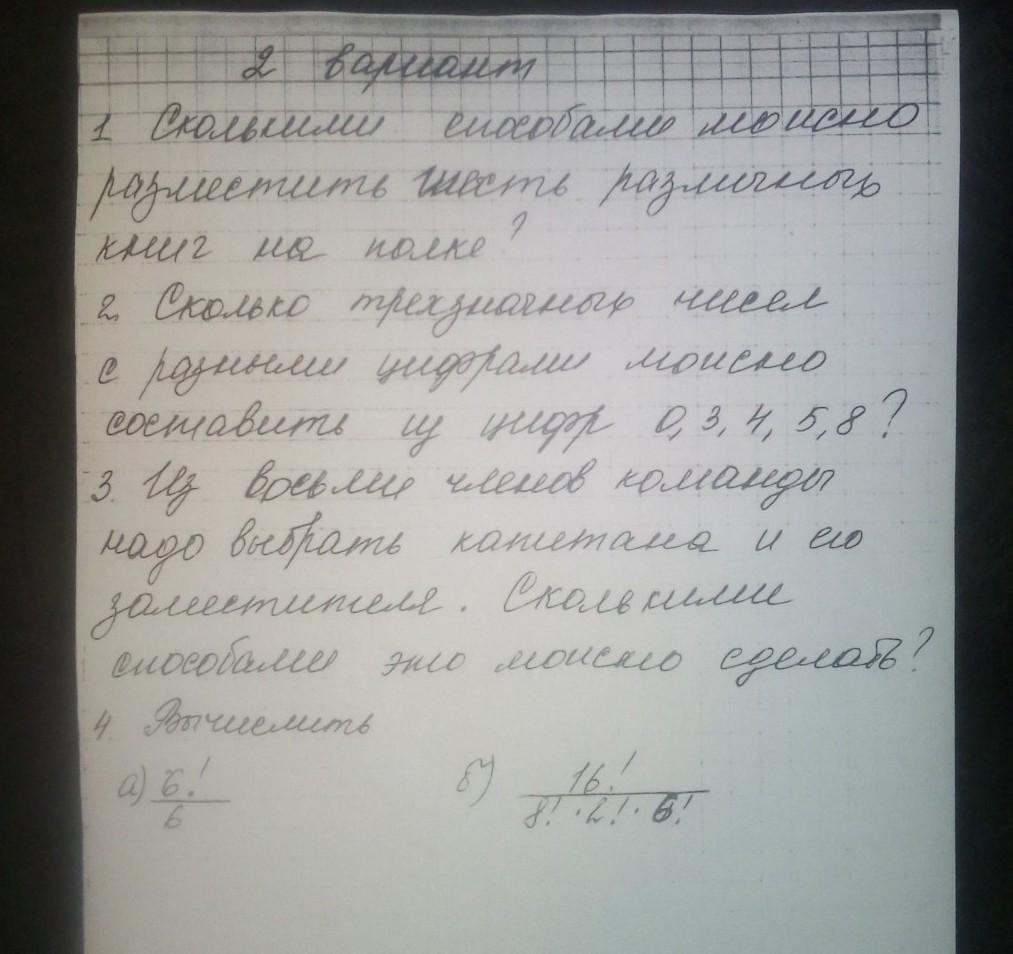 2 вариант
1 Сколькими способами можно
разместить шесть различных
книг на полке?
2. Сколько трехзначных чисел
с разными цифрами можно
составить из цифр 0, 3, 4, 5, 8?
3. Из восьми членов команды
надо выбрать капитана и его
заместителя. Сколькими
способами это можно сделать?
4. Вычислить
а) 6! / 6 б) 16! / 8! · 2! · 6!